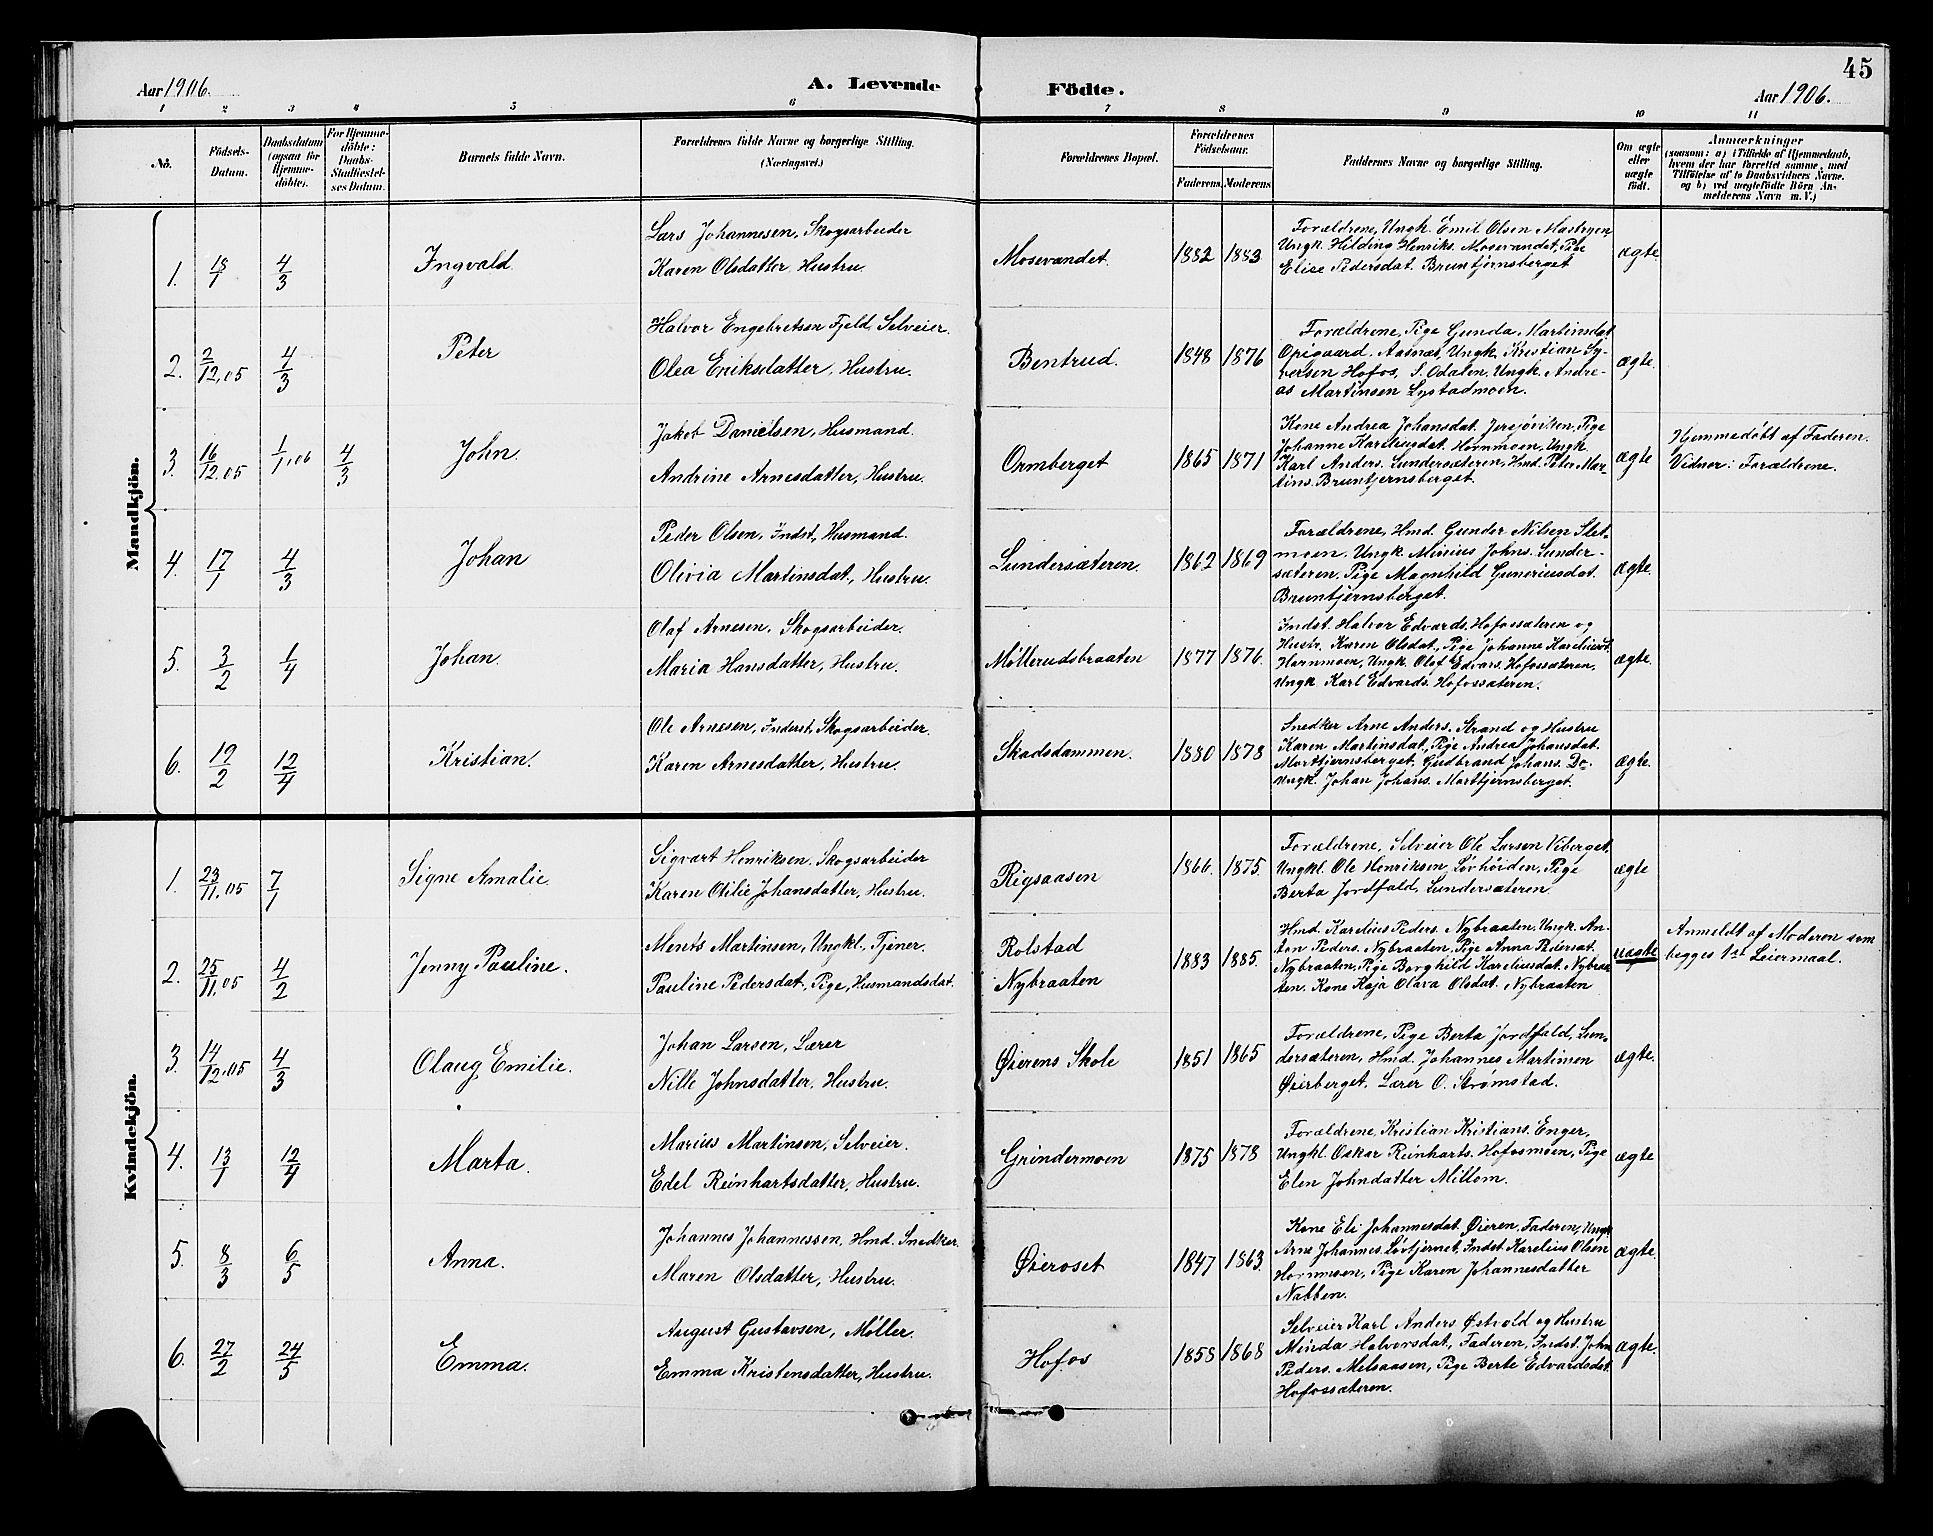 45
Aar 1906.
A. Levende Födte.
Aar 1906.
1 2 3 4 5 6 7 8 9 10 11
No.
Födsels-Datum.
Daabsdatum (ogsaa for Hjemme-döbte).
For Hjemme-döbte: Daabs-Stadfæstel-ses Datum.
Barnets fulde Navn.
Forældrenes fulde Navne og borgerlige Stilling. (Næringsvei.)
Forældrenes Bopæl.
Forældrenes Födselsaar.
Faderens. Moderens.
Faddernes Navne og borgerlige Stilling.
Om ægte eller uægte födt.
Anmærkninger
(saasom: a) i Tilfælde af Hjemmedaab,
hvem der har forrettet samme, med
Tilföielse af to Daabsvidners Navne,
og b) ved uægtefödte Börn An-
melderens Navn m. V.)
Mandkjön.
1. 18/1 4/3 Ingvald.
Lars Johannesen, Skogsarbeider
Karen Olsdatter, Hustru.
Mosevandet. 1882 1883
Forældrene, Ungk. Emil Olsen
Ungk. Hilding Henriks. Mosevandet, Pige
Elise Pedersdat. Bruntjernsberget
ægte.
2. 2/12.05 4/3 Peter
Halvor Engebretsen Fjeld, Selveier.
Olea Eriksdatter, Hustru.
Bentrud. 1848 1876
Forældrene, Pige Gunda Martinsdat.
Opigaard, Aasnæs, Ungk. Kristian Sy-
versen Hofos, S. Odalen, Ungk. Andre-
as Martinsen Lystadmoen.
ægte.
3. 16/12.05 1/1.06 4/3 John.
Jakob Danielsen, Husmand.
Andrine Arnesdatter, Hustru.
Ormberget 1865 1871
Kone Andrea Johansdat. Pige
Johanne Kareliusdat. Hornmoen, Ungk.
Karl Anders. Lundersæteren, Hmd. Peter Mar-
tins. Bruntjernsberget.
ægte
Hjemmedøbt af Faderen.
Vidner: Forældrene.
4. 17/1 4/3 Johan
Peder Olsen, Indst, Husmand.
Olivia Martinsdat, Hustru.
Lundersæteren. 1862 1869
Forældrene, Hmd. Gunder Nilsen Slet-
moen. Ungk. Minius Johns. Lunder-
sæteren. Pige Magnhild Guneriusdat.
Bruntjernsberget.
ægte.
5. 3/2 1/4 Johan.
Olaf Arnesen, Skogsarbeider.
Maria Hansdatter, Hustru.
Møllerudsbraaten 1877 1876.
Indst. Halvor Edvards. Hofossæteren og
Hustr. Karen Olsdat, Pige Johanne Kareliusd.
Hornmoen, Ungk. Olof Edvars. Hofossæteren,
Ungk. Karl Edvards. Hofossæteren.
ægte.
6. 19/2 12/4 Kristian.
Ole Arnesen, Inderst, Skogsarbeider.
Karen Arnesdatter, Hustru.
Skadsdammen. 1880 1878
Snedker Arne Anders. Strand og Hustru
Karen Martinsdat, Pige Andrea Johansdat.
Morttjernsberget, Gudbrand Johans. Do.
Ungk. Johan Johans. Morttjernsberget.
ægte.
Kvindekjön.
1. 23/11.05 7/1 Signe Amalie.
Sigvart Henriksen, Skogsarbeider
Karen Otilie Johansdatter, Hustru.
Rigsaasen 1866. 1875.
Forældrene, Selveier Ole Larsen Viberget.
Ungkl. Ole Henriksen, Løvhøiden, Pige
Berta Jordfald, Lundersæteren
ægte
2. 25/11.05 4/2 Jenny Pauline.
Ments Martinsen, Ungkl., Tjener.
Pauline Pedersdat, Pige, Husmandsdat.
Rolstad
Nybraaten 1883 1885.
Hmd. Karelius Peders. Nybraaten, Ungk. An-
ton Peders. Nybraaten, Pige Anna Pedersdat.
Nybraaten, Pige Borghild Kareliusdat. Nybraa-
ten. Kone Kaja Olava Olsdat. Nybraaten
uægte
Anmeldt af Moderen som
begges 1ste Leiermaal.
3. 14/12.05 4/3 Olaug Emilie.
Johan Larsen, Lærer
Nille Johnsdatter, Hustru.
Øierens Skole 1851 1865
Forældrene, Pige Berta Jordfald, Lun-
dersæteren, Hmd. Johannes Martinsen
Øierberget. Lærer O. Strømstad.
ægte.
4. 13/1 12/4 Marta.
Marius Martinsen, Selveier.
Edel Reinhartsdatter, Hustru.
Grindermoen 1875 1878
Forældrene, Kristian Kristians. Enger,
Ungkl. Oskar Reinharts. Hofosmoen, Pige
Elen Johndatter Millom.
ægte
5. 8/3 6/5 Anna.
Johannes Johannessen, Hmd. Snedker.
Maren Olsdatter, Hustru.
Øieroset 1847 1863.
Kone Eli Johannesdat. Øieren, Faderen, Ungk.
Arne Johannes. Løvtjernet, Indst. Karelius Olsen
Hornmoen, Pige Karen Johannesdatter
Nabben.
ægte.
6. 27/2 24/5 Emma.
August Gustavsen, Møller.
Emma Kristensdatter, Hustru.
Hofos 1858 1868
Selveier Karl Anders. Østvold og Hustru
Minda Halvorsdat, Faderen, Indst. John
Peders. Melsaasen, Pige Berte Edvardsdat.
Hofossæteren.
ægte.